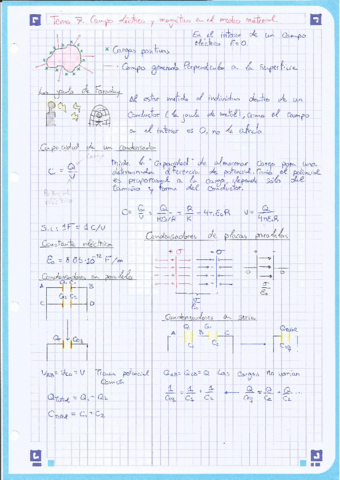 Tema 7. Campo eléctrico y magnético en el medio material.
En el interior de un campo
eléctrico E=0.
Cargas positivas
Campo generado Perpendicular a la Superficie
La jaula de Faraday
Al estar metido el individuo dentro de un
Conductor (la jaula de metal), como el campo
en el interior es 0, no le afecta
Capacidad de un condensador
C = Q/V
Mide la "capacidad" de almacenar carga para una
determinada diferencia de potencial. Puesto el potencial
es proporcional a la carga, depende solo del
tamaño y forma del conductor.
C = Q/V = Q/(KQ/R) = R/K = 4πε₀R V = Q/4πε₀R
S.I.: 1F = 1C/V
Constante eléctrica
ε₀ = 8.85·10⁻¹² F/m
Condensadores de placas paralelas
+σ -σ
0 0
σ/ε₀
Condensadores en paralelo
Condensadores en serie
A B
C D
Q₁ C₁
Q₂ C₂
A B C
V_AB = V_CD = V Tienen potencial
común
Q_AB = Q_CB = Q Las cargas no varían
Q_Total = Q₁ + Q₂
C_Total = C₁ + C₂
1/C_eq = 1/C₁ + 1/C₂ Q/C_eq = Q/C₁ + Q/C₂